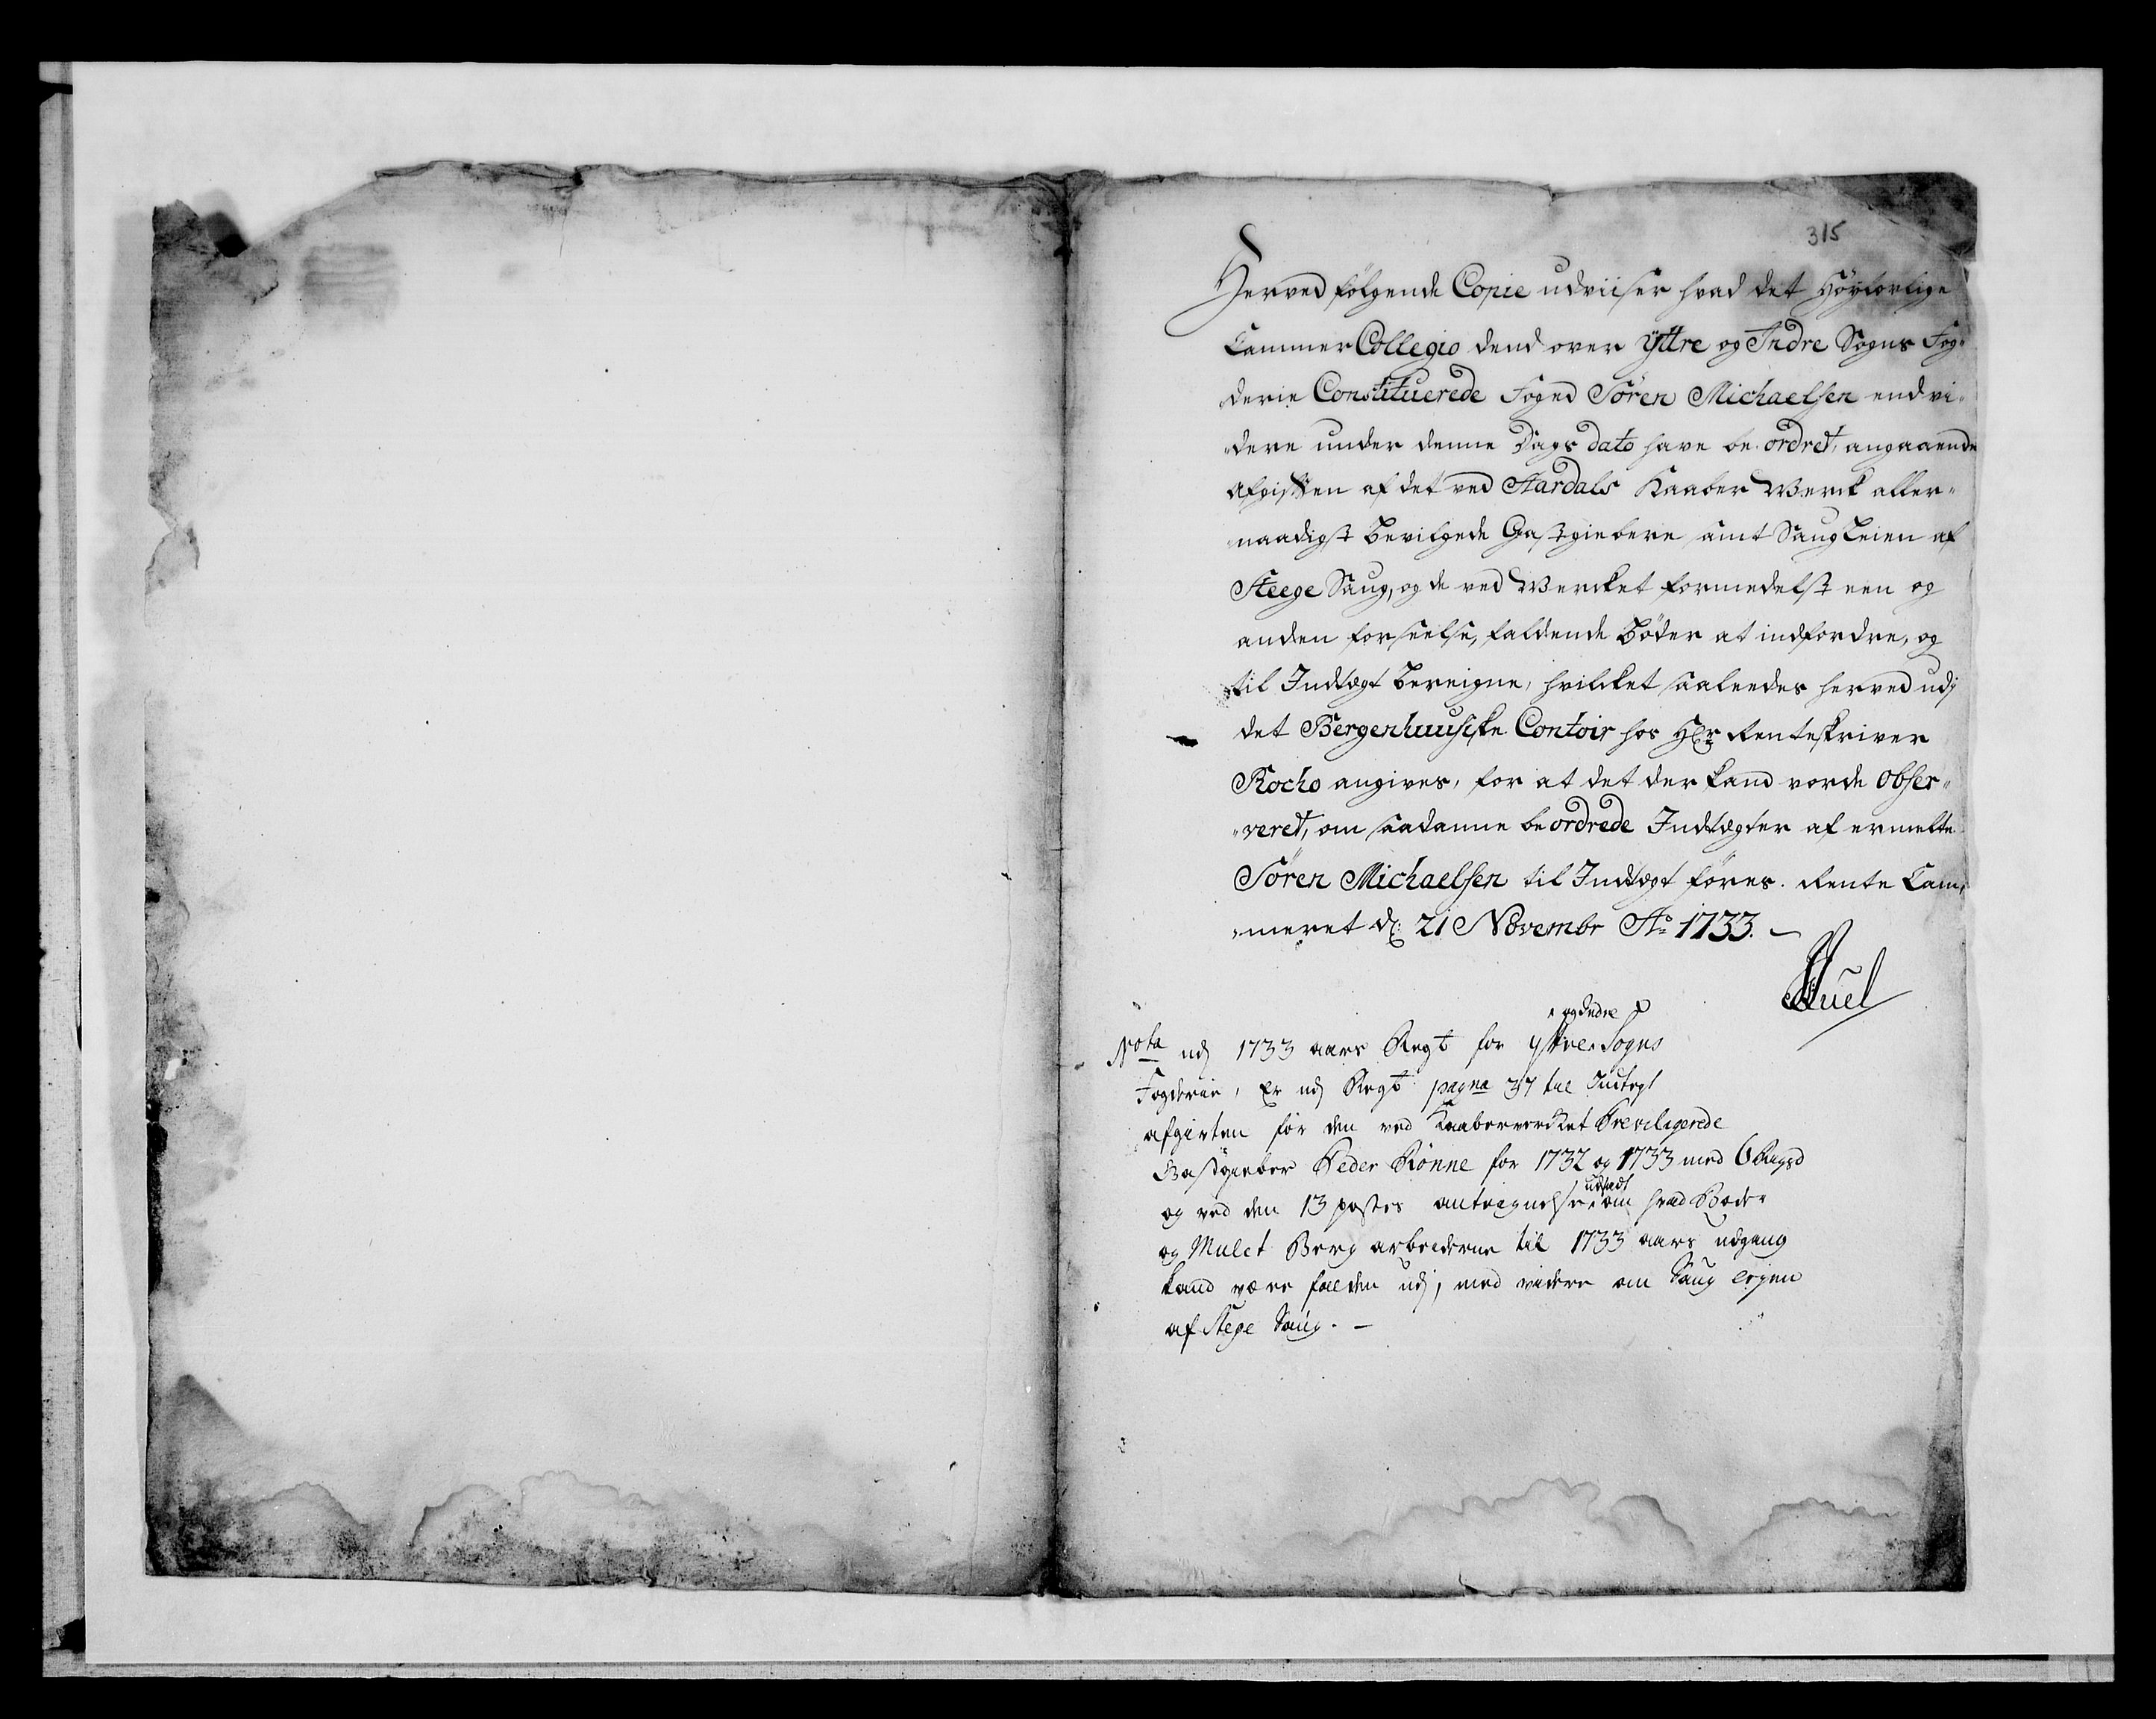 315
Herved følgende Copie udviiser hvad det Høylovlige
Cammer Collegio dend over Yttre og Indre Sogns Fog-
derie Constituerede Foged Sören Michaelsen endvi-
dere under denne Dags dato have be ordret, angaaende
Afgiften af det ved Aardals Kaaber Werck aller-
naadigst Bevilgede Gastgiebere samt Saug Leien af
Steege Saug, og de ved Wercket formedelst een og
anden forseelse, faldende Bøder at indfordre, og
til Indtægt Bereigne, hvilcket saaleedes herved udj
det Bergenhuusiske Contoir hos Hr Renteskriver
Rocho angives, for at det der kand vorde obser-
veret, om saadanne be ordrede Indtægter af ermelte
Sören Michaelsen til Indtægt føres. Rente Cam-
meret d: 21 Novembr Ao 1733.
Juel
og Indre
Nota udj 1733 aars Regt for Yttre Sogns
Fogderie, Er udj Regt pagna 37 til Indtegt
afgivten for den ved Kaaberverket Previligerede
Gastgieber Peder Rönne for 1732 og 1733 med 6 Rigsd
udsadt
og ved den 13 postes antegnelse om hvad Bøder
og Mulct Berg arbeiderne til 1733 aars udgang
kand være falden udj, med videre om Saug leyen
af Stege Saug.